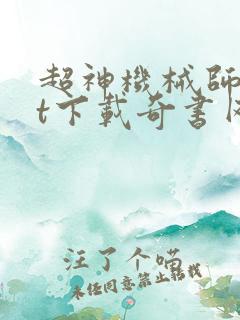 超神機械師
t下載奇書
汪了个喵
未经同意禁止转载